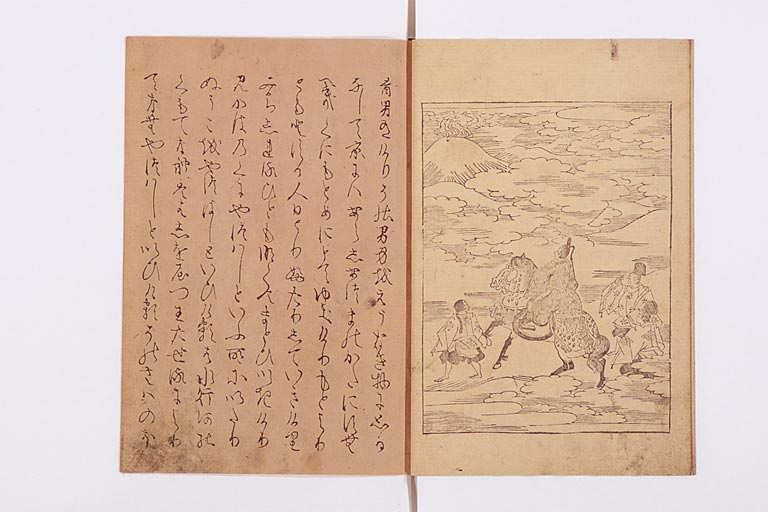 昔男ありけりその男身をえうなき物に思ひ
なして京にはあらしあつまのかたにすむ
へきくにもとめにとてゆきけりもとより
ともとする人ひとりふたりしていきけり
みちしれるひともなくてまとひいきけり
みかはのくにやつはしといふ所にいたり
ぬそこをやつはしといひけるは水行河の
くもてなれははしをやつわたせるにより
てなむやつはしといひけるそのさはのほ